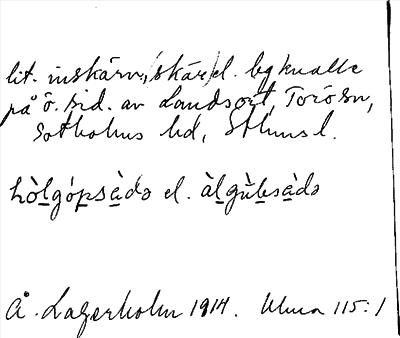 lit. inskärn, (skär) el. bg knalle
på ö. sid. av Landsort, Torö sn,
Sotholms hd, Sthms l.
hòlgópsàdə el. àlgùbsàdə
Å. Lagerholm 1914. Uhma 115:1